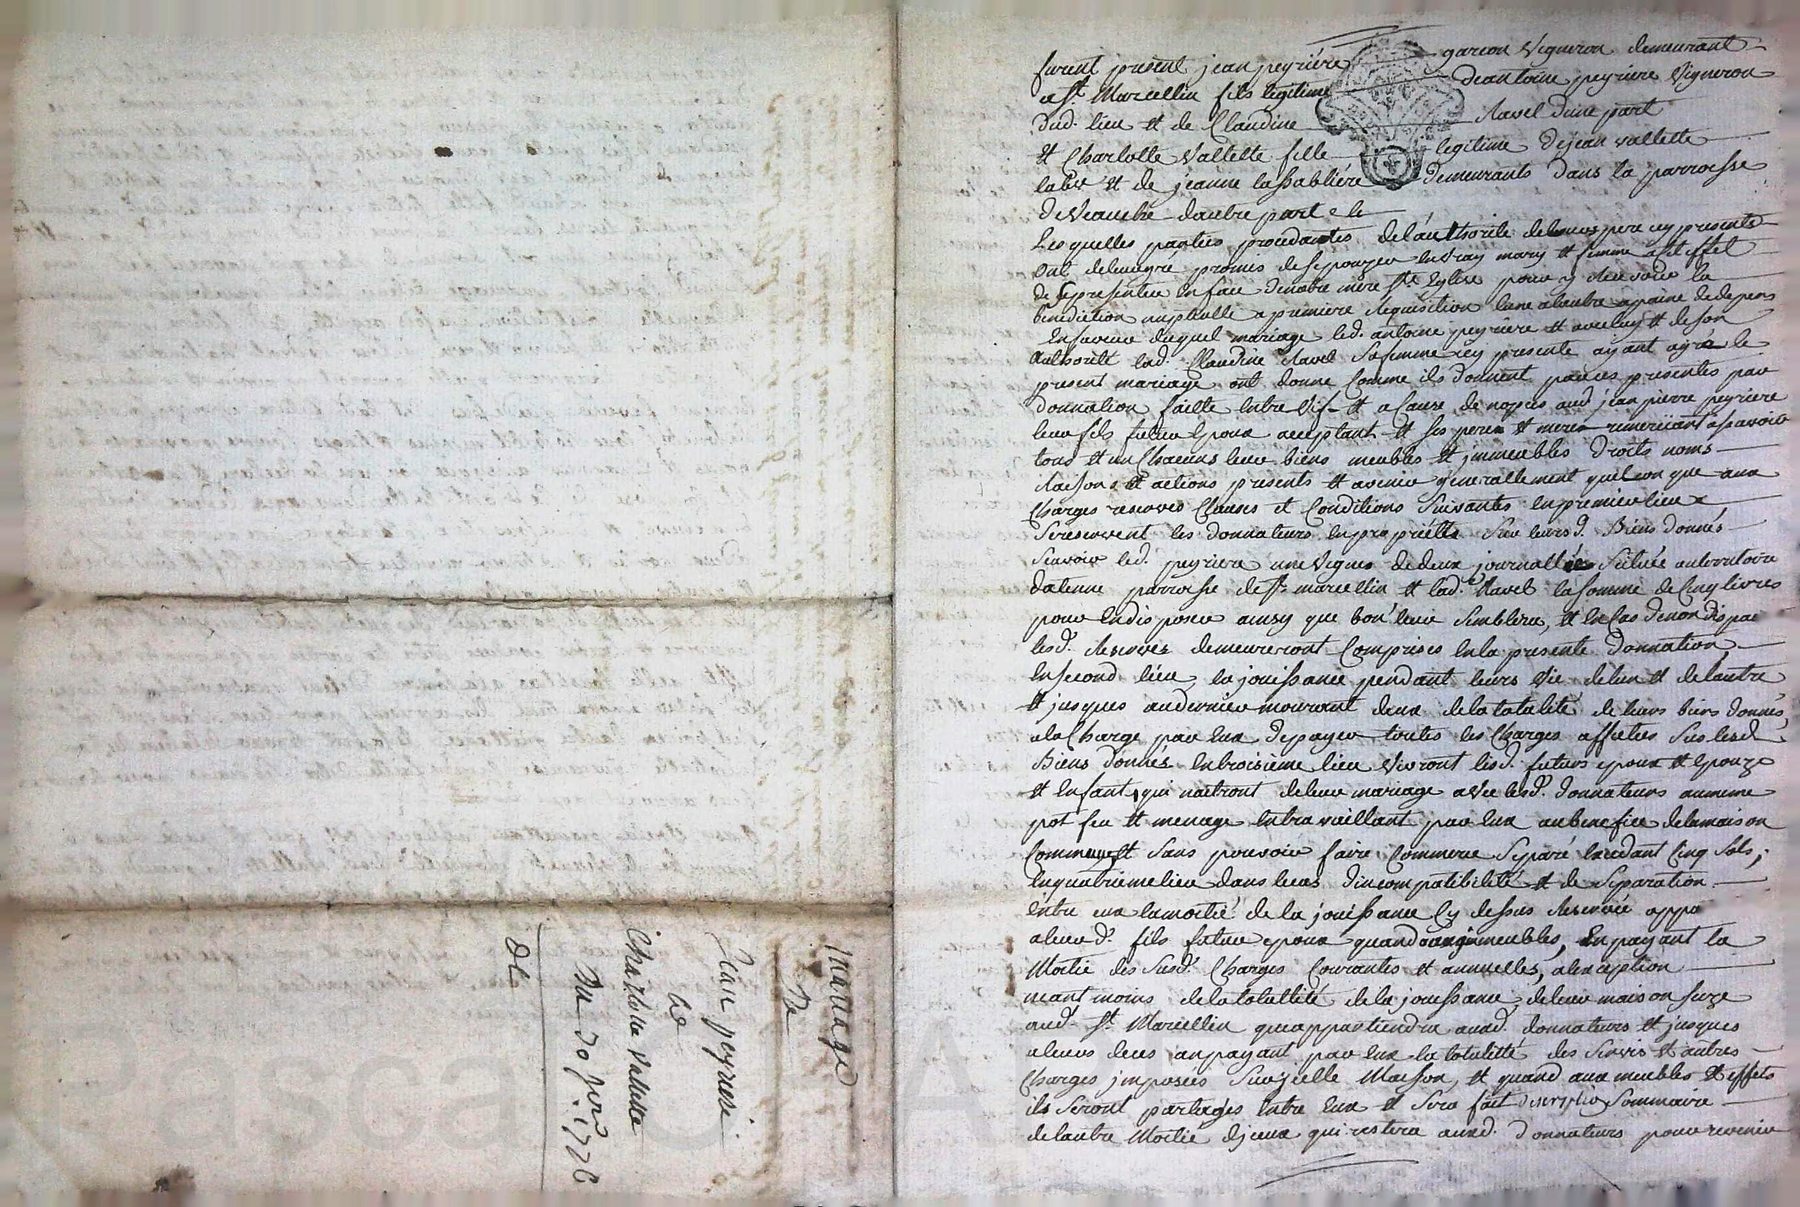 mariage
De
Jean peyriere
Et
Charlotte Vallette
Du 30 janv. 1776
furent present jean peyriére garcon Vigneron demeurant
a St. Marcellin fils legitime De antoine peyriere Vigneron
dud. lieu et de Claudine Ravel d'une part
et Charlotte Vallette fille legitime de jean vallette
et de jeanne la sabliére demeurants dans la parroisse
de Veauche d'autre part
Lesquelles parties procedantes de l'authorité de leurs pere icy presents
ont de leur gré promis de se pouzer en vray mary et femme a cet effet
de se presenter en face de notre mere Ste Eglise pour y recevoir la
benediction nuptialle a premiere requisition l'une a l'autre a paine de depens
En faveur duquel mariage led. antoine peyriere et avec luy et de son
authorité lad. Claudine Ravel sa femme icy presente ayant agré le
present mariage ont donné comme ils donnent par ces presentes par
donnation faitte entre vifs et a cause de nopces aud. jean pierre peyriere
leur fils futur epoux acceptant et ses pere et mere remerciant a sçavoir
tous et un chacuns leur biens meubles et immeubles droits noms
raisons et actions presents et avenir generallement quelconque aux
Charges reserves Clauses et Conditions Suivantes en premier lieu
Se reservent les donnateurs en propriétte sur leursd. Biens donnés
Scavoir led. peyriere une vigne de deux journallées Scituée au territoire
parroisse de St. marcellin et lad. Ravel la somme de Cinq livres
pour en disposer ainsy que bon leur semblera, et en cas de non dispoe
lesd. reserves demeureront Comprises en la presente Donnation,
en second lieu la jouissance pendant leurs vie de l'un et de l'autre
et jusques au dernier mourrant deux de la totalité de leurs biens donnés,
a la Charge par eux de payer toutes les Charges affectées sur lesd.
Biens donnés en troisieme lieu vivront lesd. futurs epoux et epouze
et enfants qui naitront de leur mariage avec lesd. donnateurs au meme
pot feu et menage en travaillant par eux au benefice de la maison
Commune et sans pouvoir faire Commerce Separé excedant Cinq Sols,
en quatrieme lieu dans le cas d'incompatibilité et de Separation
entre eux la moitié de la jouissance cy dessus reservée appa
a leurd. fils futur epoux quand aux immeubles, en payant la
Moitié des susd. Charges Courantes et annuelles, a l'exception
neant moins de la totallité de la jouissance de leur maison size
aud. St. Marcellin que appartiendra auxd. donnateurs et jusques
a leurs deces en payant par eux la totallitté des Servis et autres
Charges imposées Sur jcelle Maison, et quand aux meubles et effets
ils Seront partagés entre eux et sera fait description Sommaire
de l'autre Moitié d'jceux qui restera auxd. Donnateurs pour revenir